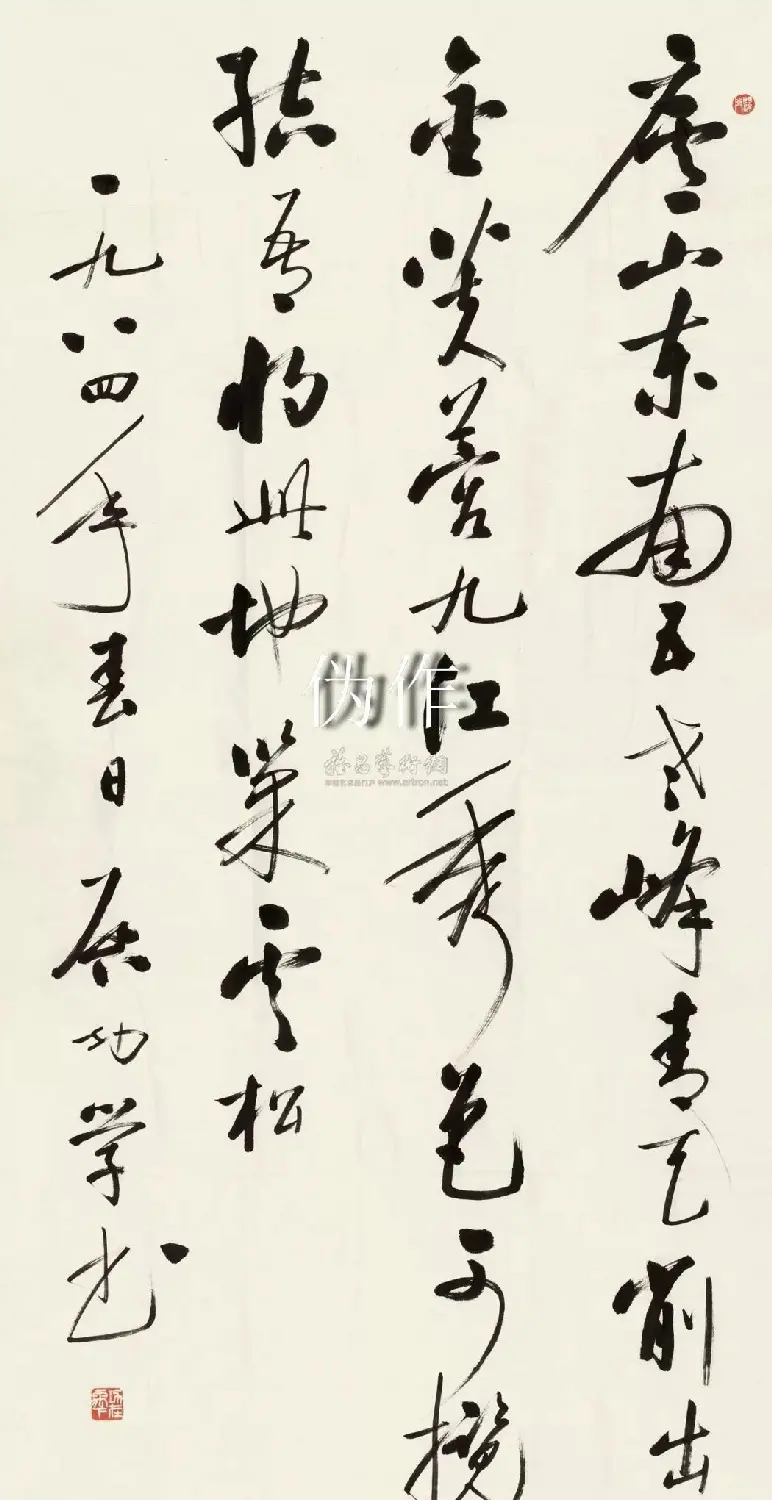 庐山东南五老峰青天削出
金芙蓉九江秀色可揽
结吾将此地巢云松
一九八四年春日启功学书
伪作
www.artron.net